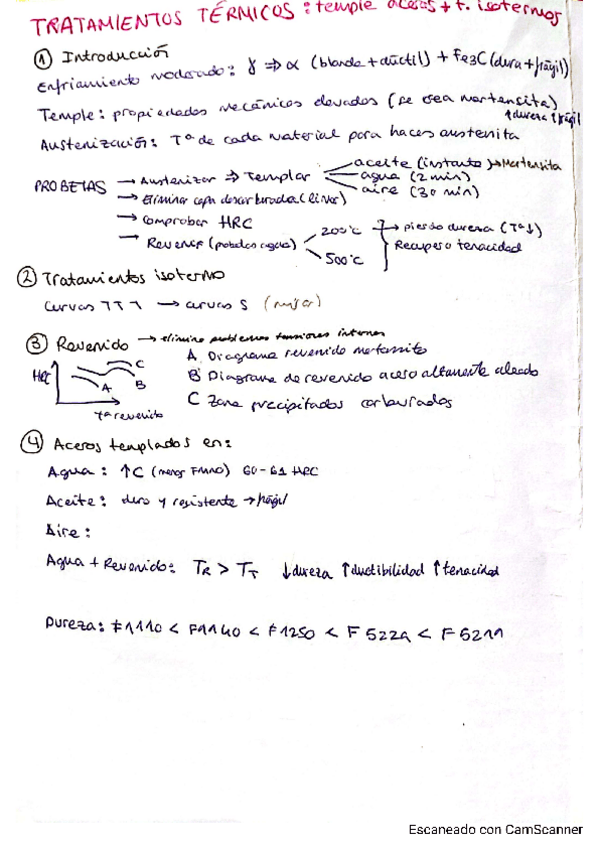 TRATAMIENTOS TÉRMICOS: temple aceros + t. isotermos
① Introducción
Enfriamiento moderado: γ ⇒ α (blanda + dúctil) + Fe3C (dura + frágil)
Temple: propiedades mecánicas elevadas (se crea martensita)
↑dureza ↑frágil
Austenización: Tª de cada material para hacer austenita
PROBETAS → Austenizar ⇒ Templar
aceite (instante) → Martensita
agua (2 min)
aire (30 min)
→ Eliminar capa descarburada (lijar)
→ Comprobar HRC
→ Revenir (probetas agua)
200°C
500°C
→ pierdo dureza (Tª↓)
Recupero tenacidad
② Tratamientos isotermo
Curvas TTT → curvas S
③ Revenido → elimina problemas tensiones internas
HRC
A
B
C
tª revenido
A. Diagrama revenido martensita
B Diagrama de revenido acero altamente aleado
C Zona precipitados carburados
④ Aceros templados en:
Agua: ↑C 60-61 HRC
Aceite: duro y resistente → frágil
Aire:
Agua + Revenido: TR > TT ↓dureza ↑ductibilidad ↑tenacidad
Dureza: F1110 < F1140 < F1250 < F522A < F5211
Escaneado con CamScanner